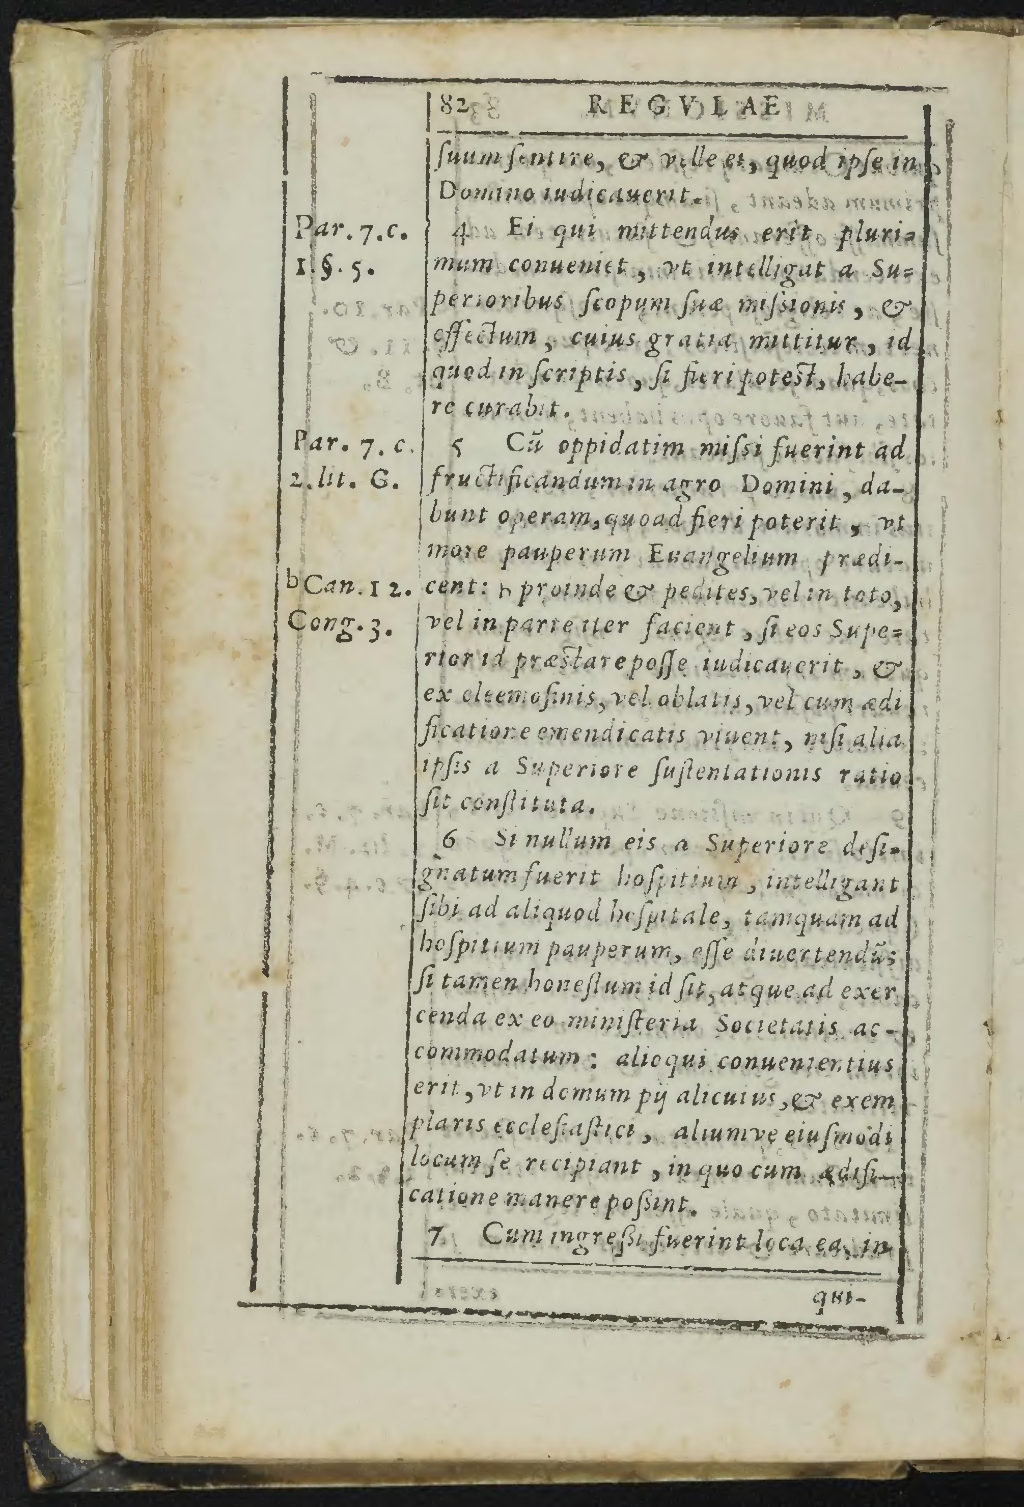 82 REGVLAE
ſuum ſentire, & velle ei, quod ipſe in
Domino iudicauerit.
Par. 7. c.
1. §. 5.
4 Ei qui mittendus erit pluri=
mum conueniet, vt intelligat a Su=
perioribus ſcopum ſuæ miſsionis, &
effectum, cuius gratia mittitur, id
quod in ſcriptis, ſi fieri poteſt, habe-
re curabit.
Par. 7. c.
2. lit. G.
5 Cū oppidatim miſsi fuerint ad
fructificandum in agro Domini, da-
bunt operam, quoad fieri poterit, vt
more pauperum Euangelium prædi-
b Can. 12.
Cong. 3.
cent: b proinde & pedites, vel in toto,
vel in parte iter facient, ſi eos Supe=
rior id præſtare poſſe iudicauerit, &
ex eleemoſinis, vel oblatis, vel cum ædi
ficatione emendicatis viuent, niſi alia
ipſis a Superiore ſuſtentationis ratio
ſit conſtituta.
6 Si nullum eis a Superiore deſi-
gnatum fuerit hoſpitium, intelligant
ſibi ad aliquod hoſpitale, tamquam ad
hoſpitium pauperum, eſſe diuertendūs
ſi tamen honeſtum id ſit, atque ad exer
cenda ex eo miniſteria Societatis ac-
commodatum: alioqui conuenientius
erit, vt in domum pij alicuius, & exem
plaris eccleſiaſtici, aliumve eiuſmodi
locum ſe recipiant, in quo cum ædifi-
catione manere poſsint.
7 Cum ingreſsi fuerint loca ea, in
qui-